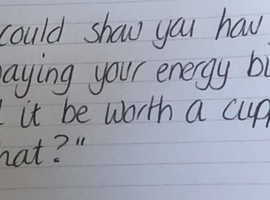 could show you how
aying your energy bi
it be worth a cup
hat?"